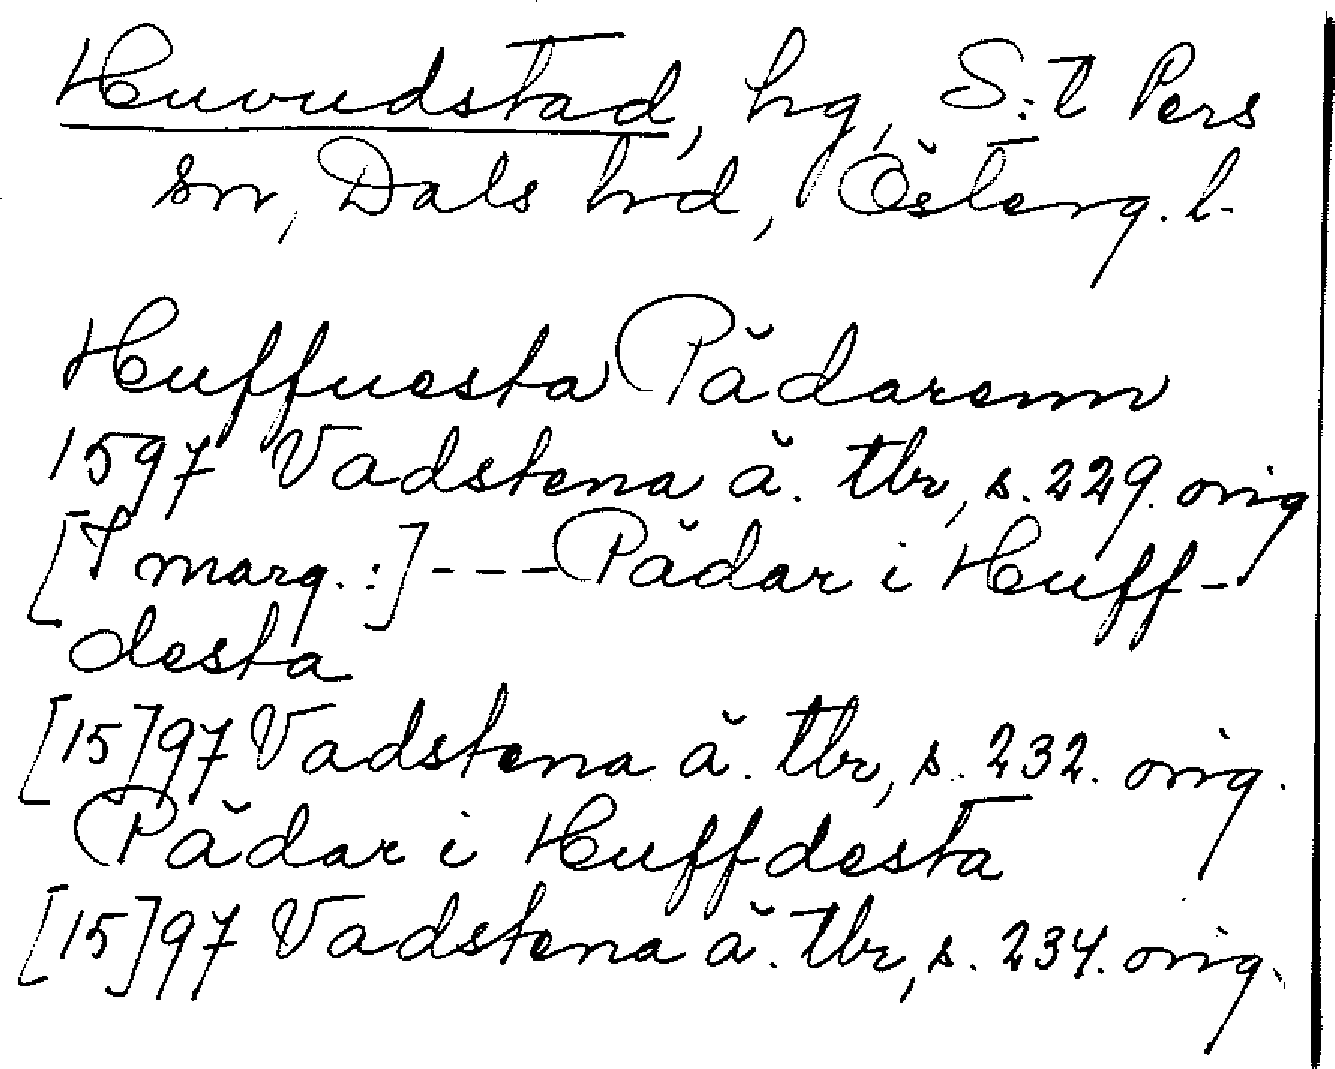 Huvudstad, hg, S:t Pers
sn, Dals hd, Österg. l.
Huffuesta Pädarenn
1597 Vadstena ä. tbr, s. 229. orig
[I marg.:] --- Pädar i Huff-
desta
[15]97 Vadstena ä. tbr, s. 232. orig.
Pädar i Huffdesta
[15]97 Vadstena ä. tbr, s. 234. orig.